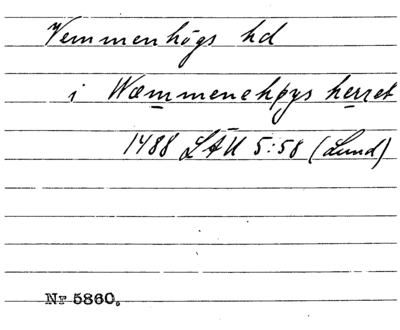 Vemmenhögs hd
i Wæmmenehøys herret
1488 LÄU 5:58 (Lund)
Nr 5860.